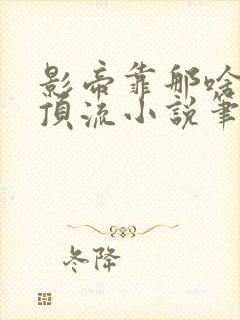 影帝靠那啥
頂流小說筆
冬降